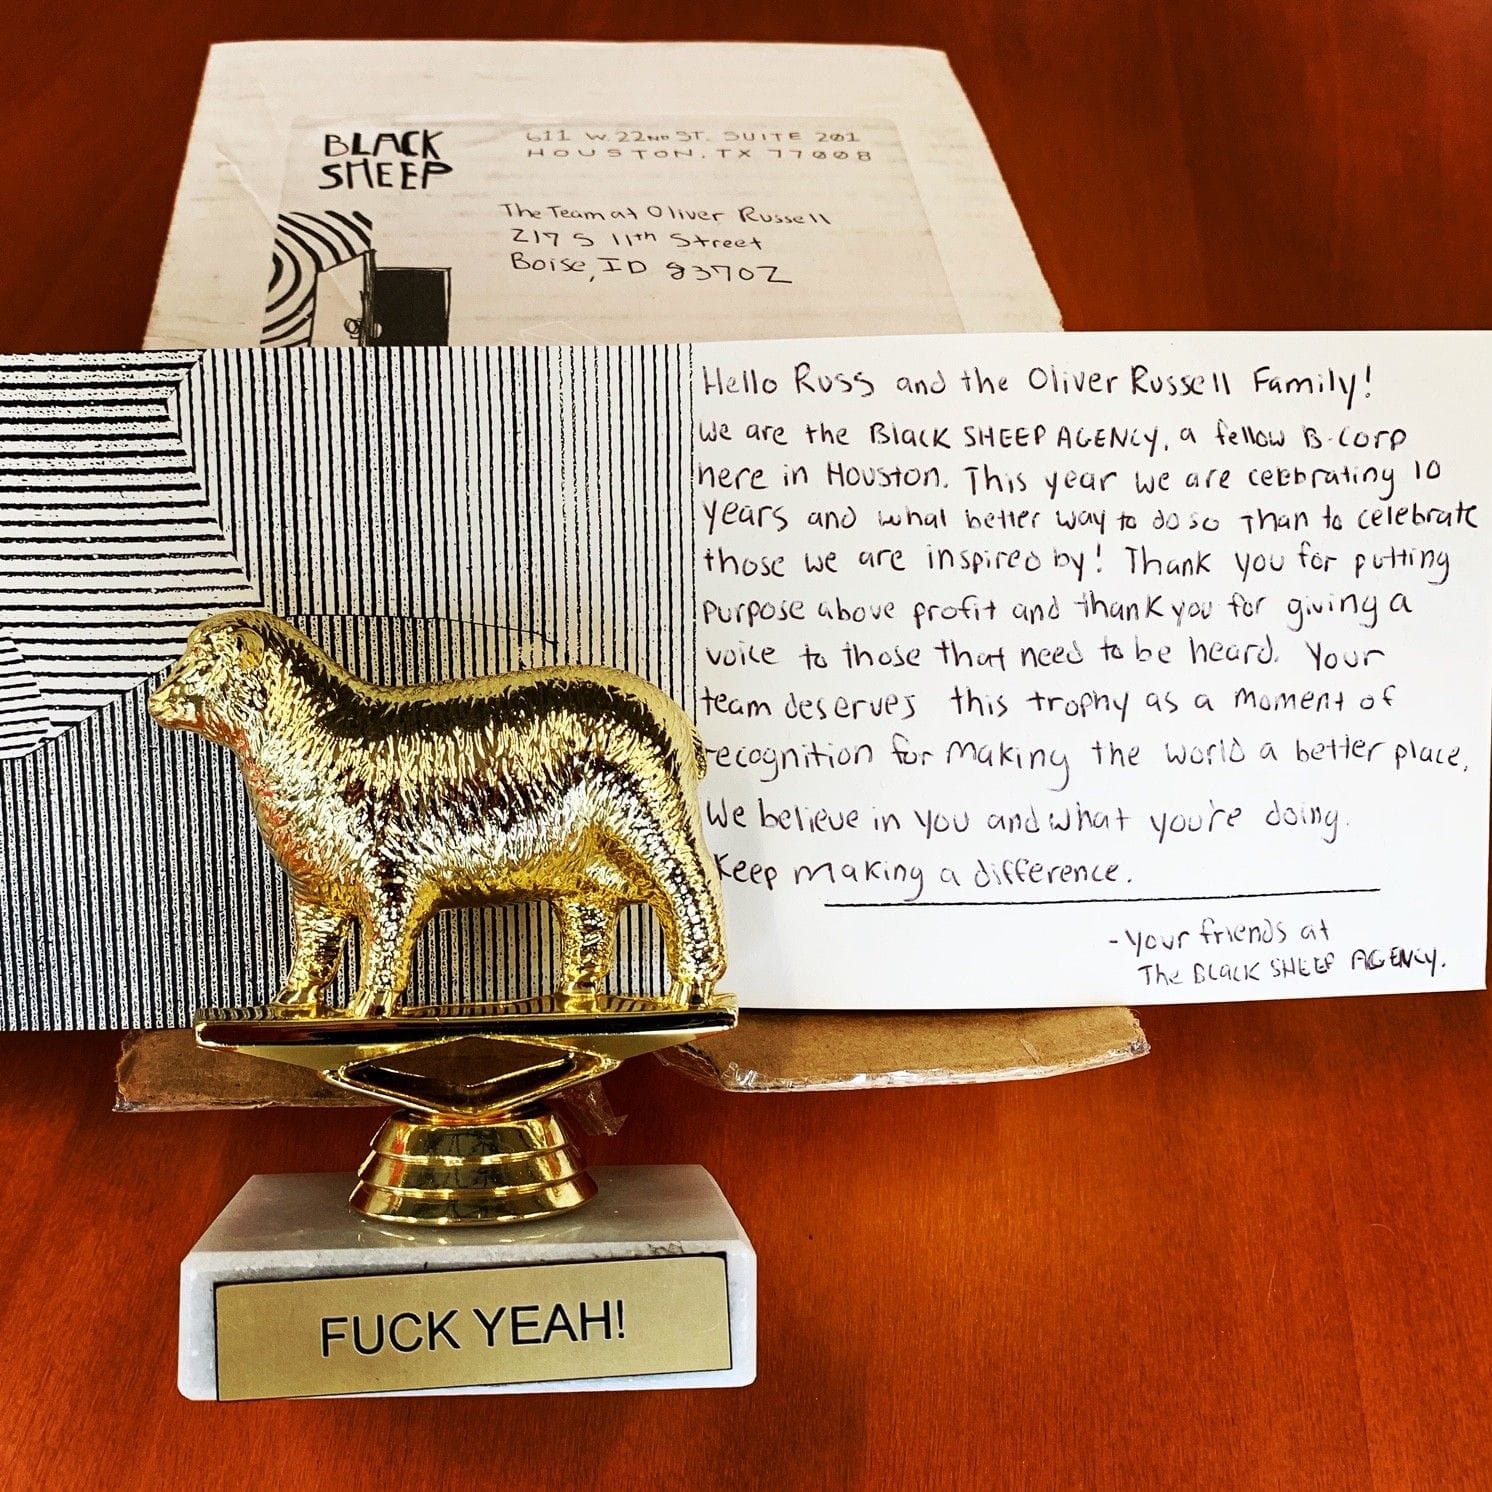 BLACK
SHEEP
611 W. 22ND ST. SUITE 201
HOUSTON, TX 77008
The Team at Oliver Russell
217 S 11th Street
Boise, ID 83702
Hello Russ and the Oliver Russell Family!
We are the Black SHEEP AGENCY, a fellow B-Corp
here in Houston. This year we are celebrating 10
years and what better way to do so than to celebrate
those we are inspired by! Thank you for putting
purpose above profit and thank you for giving a
voice to those that need to be heard. Your
team deserves this trophy as a moment of
recognition for making the world a better place.
We believe in you and what you're doing.
Keep making a difference.
- Your friends at
The BLACK SHEEP AGENCY.
FUCK YEAH!